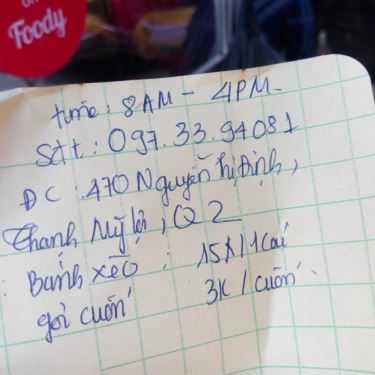 on
Foody
time: 8AM - 4PM.
Sđt: 097.33.94081
ĐC: 470 Nguyễn Thị Định,
Thạnh Mỹ Lợi, Q2
Bánh xèo: 15K/1 cái
gỏi cuốn 3K/cuốn